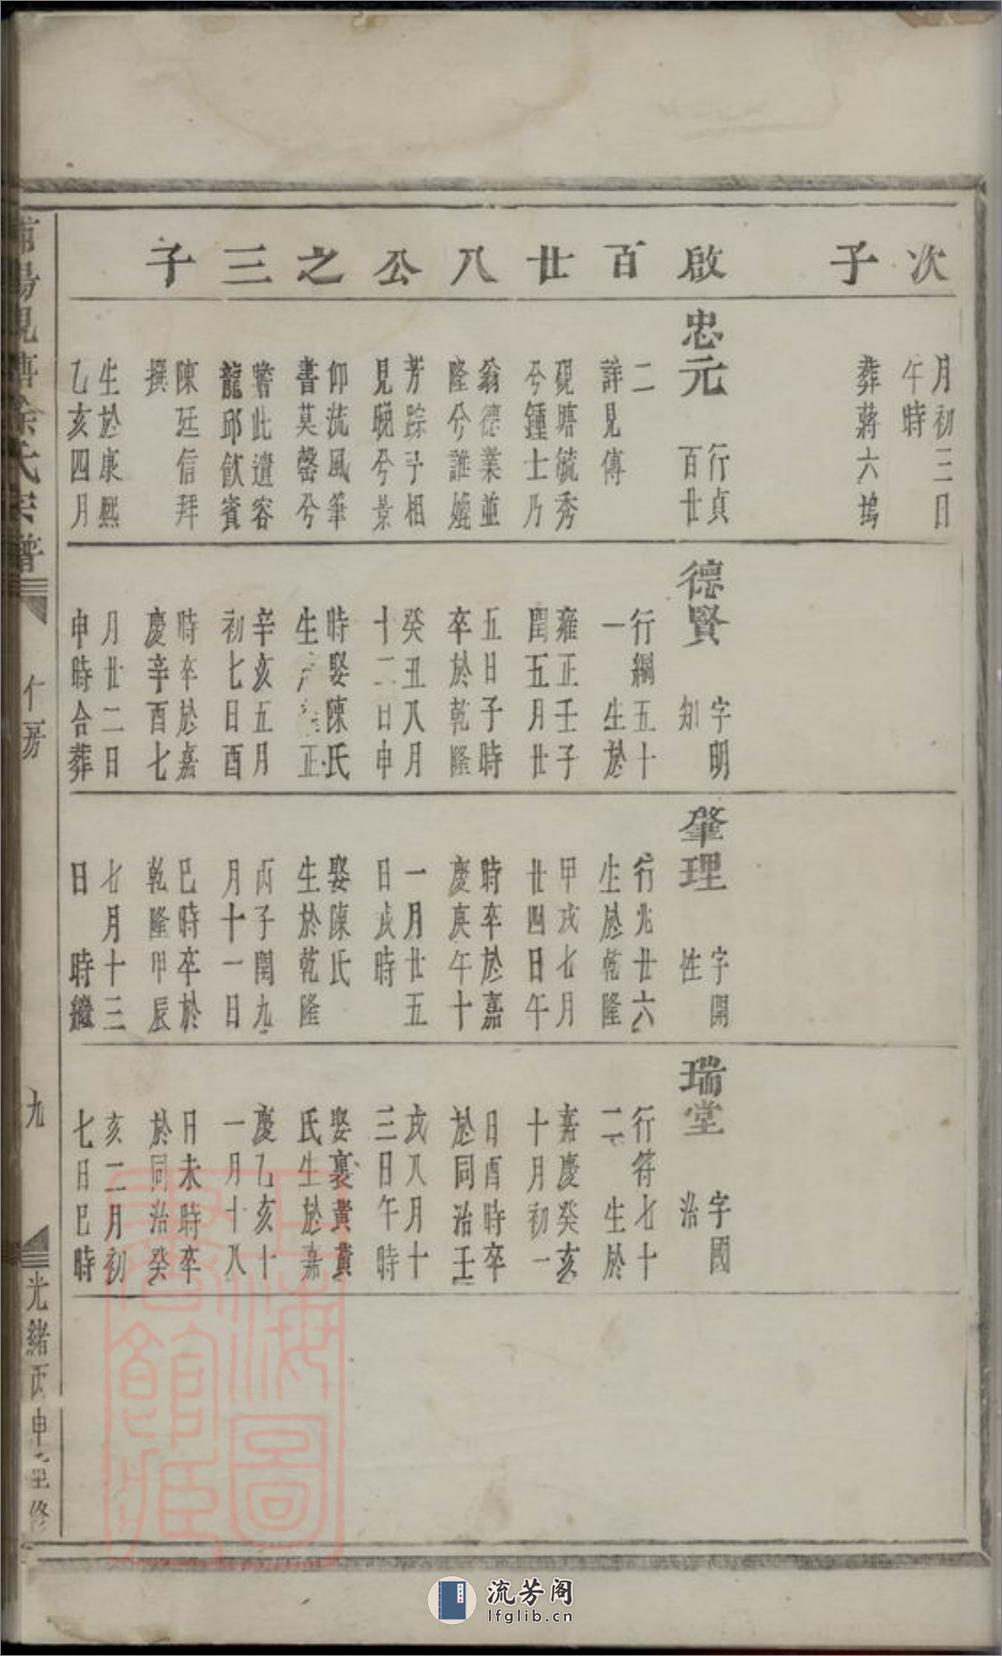 次子
啟百廿八公之三子
月初三日
午時
葬蔣六塢
忠元
行貞
百廿
二
詳見傳
硯塘毓秀
兮鍾士乃
翁德業並
隆兮誰媲
芳踪予相
見睕兮景
仰流風筆
書莫罄兮
瞻此遺容
龍邱飲賓
陳廷信拜
撰
生於康熙
乙亥四月
德賢
字明
知
行綱五十
一 生於
雍正壬子
閏五月廿
五日子時
卒於乾隆
癸丑八月
十二日申
時娶陳氏
生於雍正
辛亥五月
初七日酉
時卒於嘉
慶辛酉七
月廿二日
申時合葬
肇理
字開
性
行兆廿六
生於乾隆
甲戌七月
廿四日午
時卒於嘉
慶庚午十
一月廿五
日戌時
娶陳氏
生於乾隆
丙子閏九
月十一日
巳時卒於
乾隆甲辰
七月十三
日 時繼
瑞堂
字國
治
行符七十
二 生於
嘉慶癸亥
十月初一
日酉時卒
於同治壬
戌八月十
三日午時
娶裏黃黃
氏生於嘉
慶乙亥十
一月十八
日未時卒
於同治癸
亥二月初
七日巳時
浦陽硯塘徐氏宗譜
仁房
九
光緒丙申重修
上海圖書館藏
流芳阁
lfglib.cn